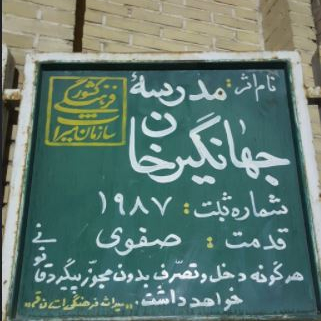 نام اثر: مدرسهٔ
جهانگیرخان
شماره ثبت: ۱۹۸۷
قدمت: صفوی
هرگونه دخل و تصرف بدون مجوز پیگرد قانونی
خواهد داشت. «میراث فرهنگی استان قم»
سازمان میراث
فرهنگی کشور